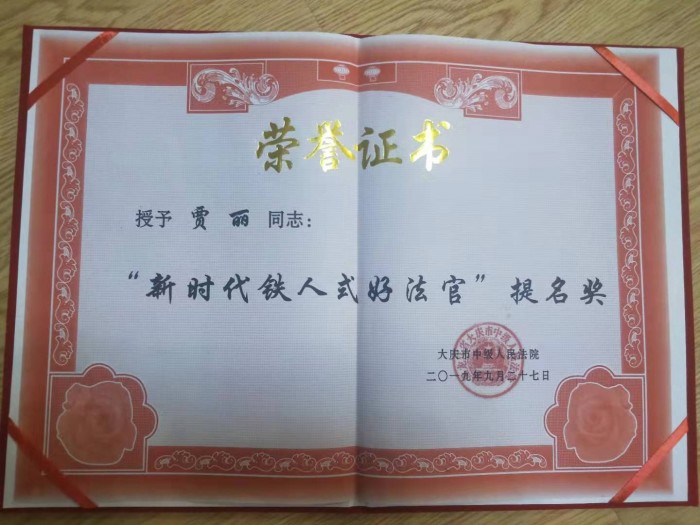 荣誉证书
授予 贾丽 同志：
“新时代铁人式好法官”提名奖
大庆市中级人民法院
二〇一九年九月二十七日